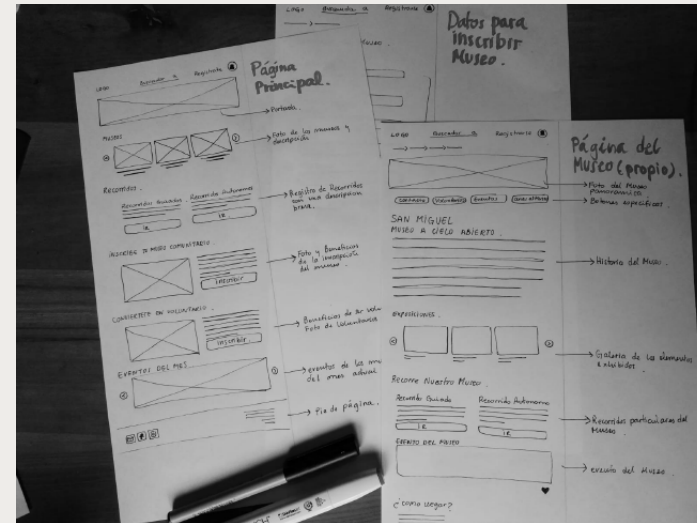 LOGO Buscador Registrarse
Página
Principal.
Portada
MUSEOS
Foto de los museos y
descripción
RECORRIDOS.
Recorridos Guiados Recorrido Autonomo
IR IR
Registro de Recorridos
con una descripcion
breve.
INSCRIBE TU MUSEO COMUNITARIO
Inscribir
Foto y Beneficios
de la inscripción
del museo.
CONVIERTETE EN VOLUNTARIO.
Inscribir
Beneficios de ser
Foto de Voluntarios
EVENTOS DEL MES
eventos de los
del mes actual
Pie de página.
LOGO Buscador Registrarse
Datos para
inscribir
Museo.
LOGO Buscador Registrarse
Página del
Museo (propio).
Foto del Museo
panoramica
Contacto Voluntarios Eventos
Botones especificos
SAN MIGUEL
MUSEO A CIELO ABIERTO.
Historia del Museo.
EXPOSICIONES.
Galeria de los elementos
exhibidos
Recorre Nuestro Museo.
Recorrido Guiado Recorrido Autonomo
IR IR
Recorridos particulares del
Museo
EVENTO DEL MUSEO
evento del Museo.
¿como llegar?